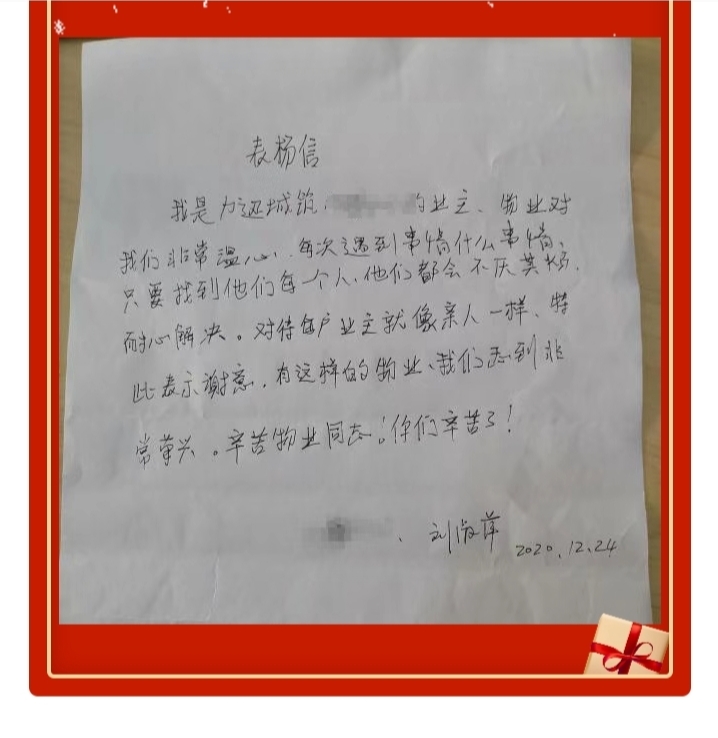 表杨信
我是力迈城筑 的业主、物业对
我们非常温心,每次遇到事情什么事情、
只要找到他们每一个人,他们都会不厌其烦.
耐心解决。对待每户业主就像亲人一样、特
此表示谢意.有这样的物业、我们感到非
常荣兴。辛苦物业同志!你们辛苦了!
刘 萍 2020.12.24